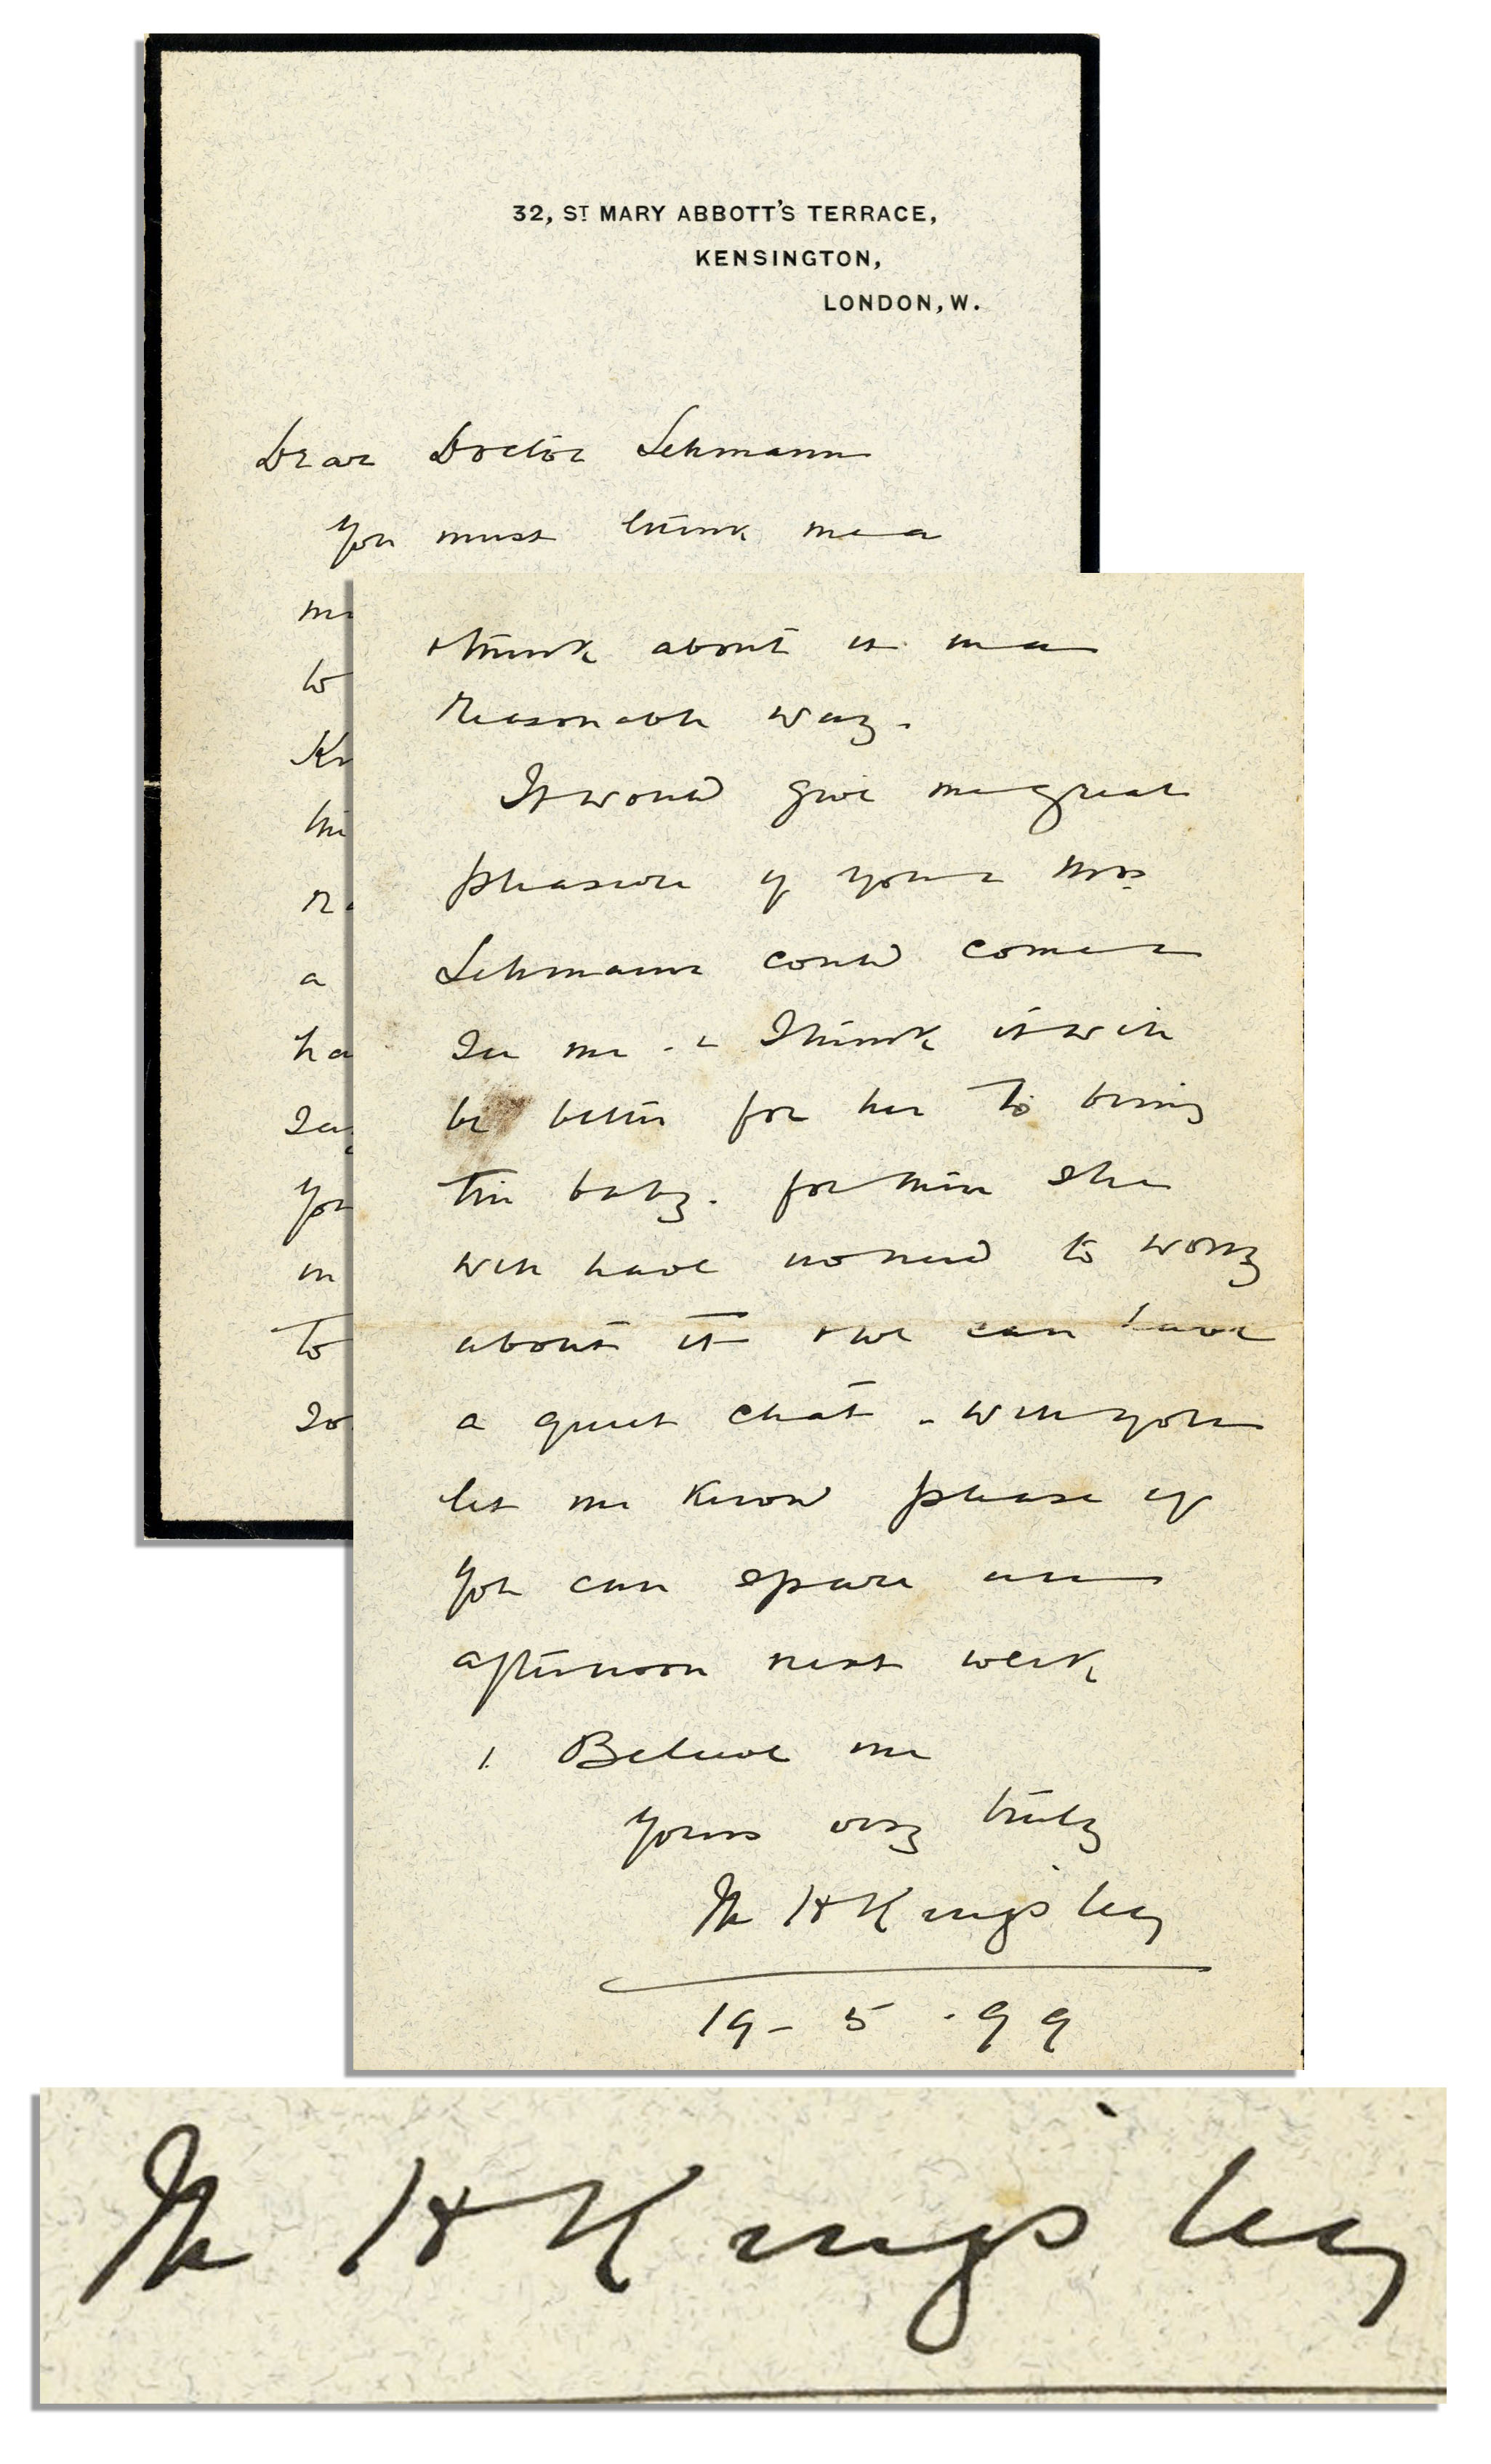 32, ST MARY ABBOTT'S TERRACE,
KENSINGTON,
LONDON, W.
Dear Doctor Lehmann
You must think me a
to
a
You
in
to
think about it in a
reasonable way.
It would give me great
pleasure if you & Mrs
Lehmann could come &
See me - & I think it will
be better for her to bring
the baby. for then she
will have no need to worry
about it & we can have
a quiet chat - will you
let me know please if
you can spare an
afternoon next week
& Believe me
yours very truly
M H Kingsley
19 - 5 - 99
M H Kingsley